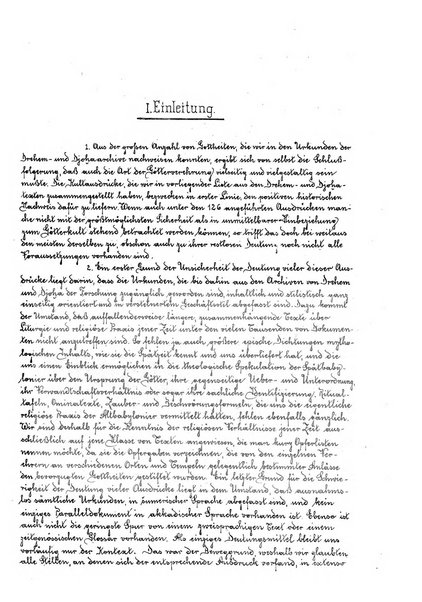 I. Einleitung.
1. Aus der großen Anzahl von Gottheiten, die wir in den Urkunden der
Drehem- und Djohaarchive nachweisen konnten, ergibt sich von selbst die Schluß-
folgerung, daß auch die Art der Götterverehrung vielseitig und vielgestaltig sein
mußte. Die Kultausdrücke, die wir in vorliegender Liste aus den Drehem- und Djoha-
texten zusammengestellt haben, bezwecken in erster Linie, den positiven historischen
Nachweis dafür zu liefern. Wenn auch unter den 126 angeführten Ausdrücken man-
che nicht mit der größtmöglichsten Sicherheit als in unmittelbarer Einbeziehung
zum Götterkult stehend betrachtet werden können, so trifft das doch bei weitaus
den meisten derselben zu, obschon auch zu ihrer restlosen Deutung noch nicht alle
Voraussetzungen vorhanden sind.
2. Ein erster Grund der Unsicherheit der Deutung vieler dieser Aus-
drücke liegt darin, dass die Urkunden, die bis dahin aus den Archiven von Drehem
und Djoha der Forschung zugänglich geworden sind, inhaltlich und stilistisch ganz
einseitig orientiert und im verstehbaren Geschäftsstil abgefasst sind. Dazu kommt
der Umstand, dass auffallenderweise längere, zusammenhängende Texte über
Liturgie und religiöse Praxis jener Zeit unter den vielen Tausenden von Dokumen-
ten nicht anzutreffen sind. Es fehlen ja auch größere epische Dichtungen mytho-
logischen Inhalts, wie sie die Spätzeit kennt und uns überliefert hat, und die
uns einen Einblick ermöglichen in die theologische Spekulation der Spätbaby-
lonier über den Ursprung der Götter, ihre gegenseitige Ueber- und Unterordnung,
ihr Verwandtschaftsverhältnis oder sogar ihre sachliche Identifizierung. Ritual-
tafeln, Ominatexte, Zauber- und Beschwörungsformeln, die uns die eigentliche
religiöse Praxis der Altbabylonier vermittelt hätten, fehlen ebenfalls gänzlich.
Wir sind deshalb für die Kenntnis der religiösen Verhältnisse jener Zeit aus-
schließlich auf jene Klasse von Texten angewiesen, die man kurz Opferlisten
nennen möchte, da sie die Opfergaben verzeichnen, die von den einzelnen Ver-
ehrern an verschiedenen Orten und Tempeln gelegentlich bestimmter Anlässe
den bevorzugten Gottheiten gestiftet wurden. Ein letzter Grund für die Schwie-
rigkeit der Deutung vieler Ausdrücke liegt in dem Umstand, daß ausnahms-
los sämtliche Urkunden in sumerischer Sprache abgefasst sind, und kein
einziges Paralleldokument in akkadischer Sprache vorhanden ist. Ebenso ist
auch nicht die geringste Spur von einem zweisprachigen Text oder einem
zeitgenössischen Glossar vorhanden. Als einziges Deutungsmittel bleibt uns
vorläufig nur der Kontext. Das war der Beweggrund, weshalb wir glaubten
alle Stellen, an denen sich der entsprechende Ausdruck vorfand, in extenso